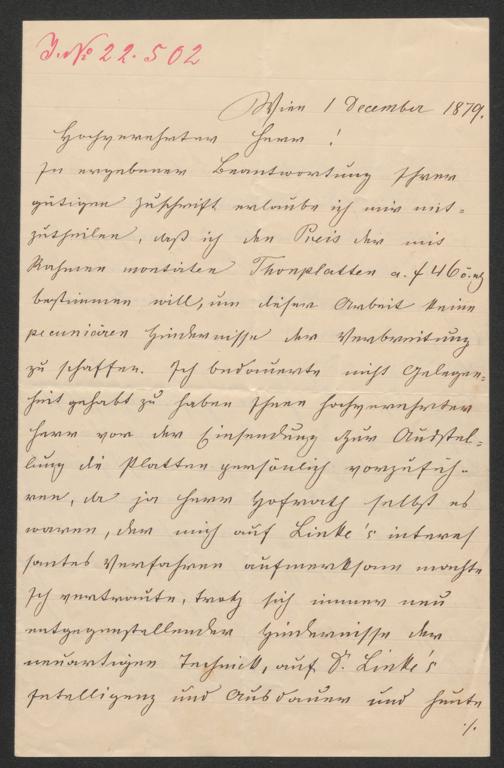 J. No 22.502
Wien 1 December 1879.
Hochverehrter Herr!
In ergebener Beantwortung Ihrer
gütigen Zuschrift erlaube ich mir mit-
zutheilen, daß ich den Preis der mit
Rahmen montirten Thonplatten a. f 46 ö. 
bestimmen will, um dieser Arbeit keine
pecuniären Hindernisse der Verbreitung
zu schaffen. Ich bedauerte nicht Gelegen-
heit gehabt zu haben Ihnen hochverehrter
Herr vor der Einsendung zur Ausstel-
lung die Platten persönlich vorzufüh-
ren, da ja Herr Hofrath selbst es
waren, der mich auf Linke's interes
santes Verfahren aufmerksam machte
Ich vertraute, trotz sich immer neu
entgegenstellender Hindernisse der
neuartigen Technick, auf D. Linke's
Intelligenz und Ausdauer und heute
./.